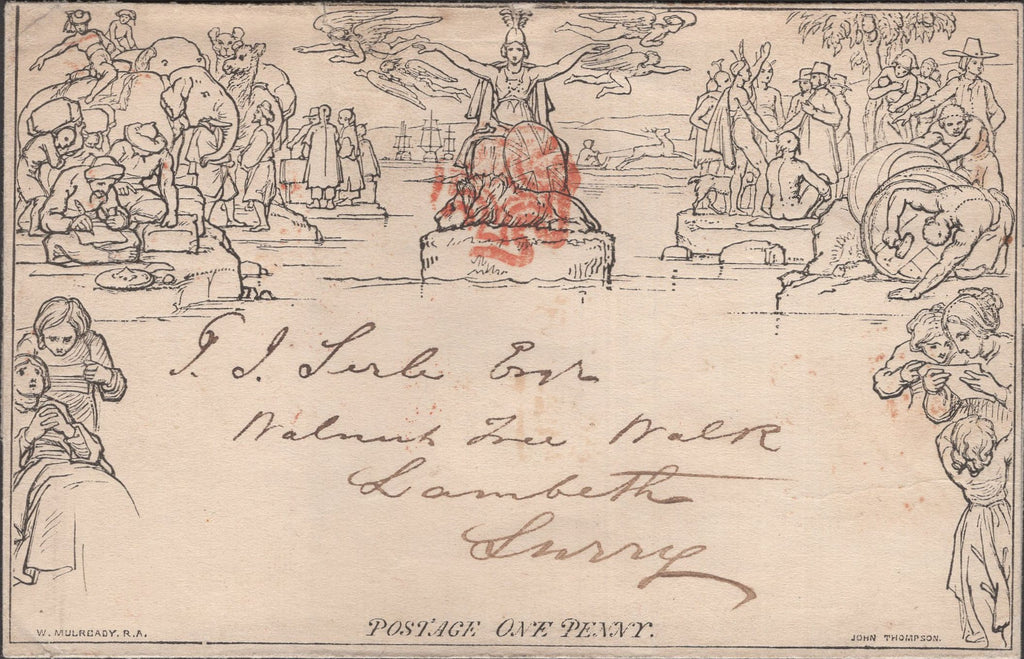 T. J. Serle Esqr
Walnut Tree Walk
Lambeth
Surry
W. MULREADY. R.A.
POSTAGE ONE PENNY.
JOHN THOMPSON.